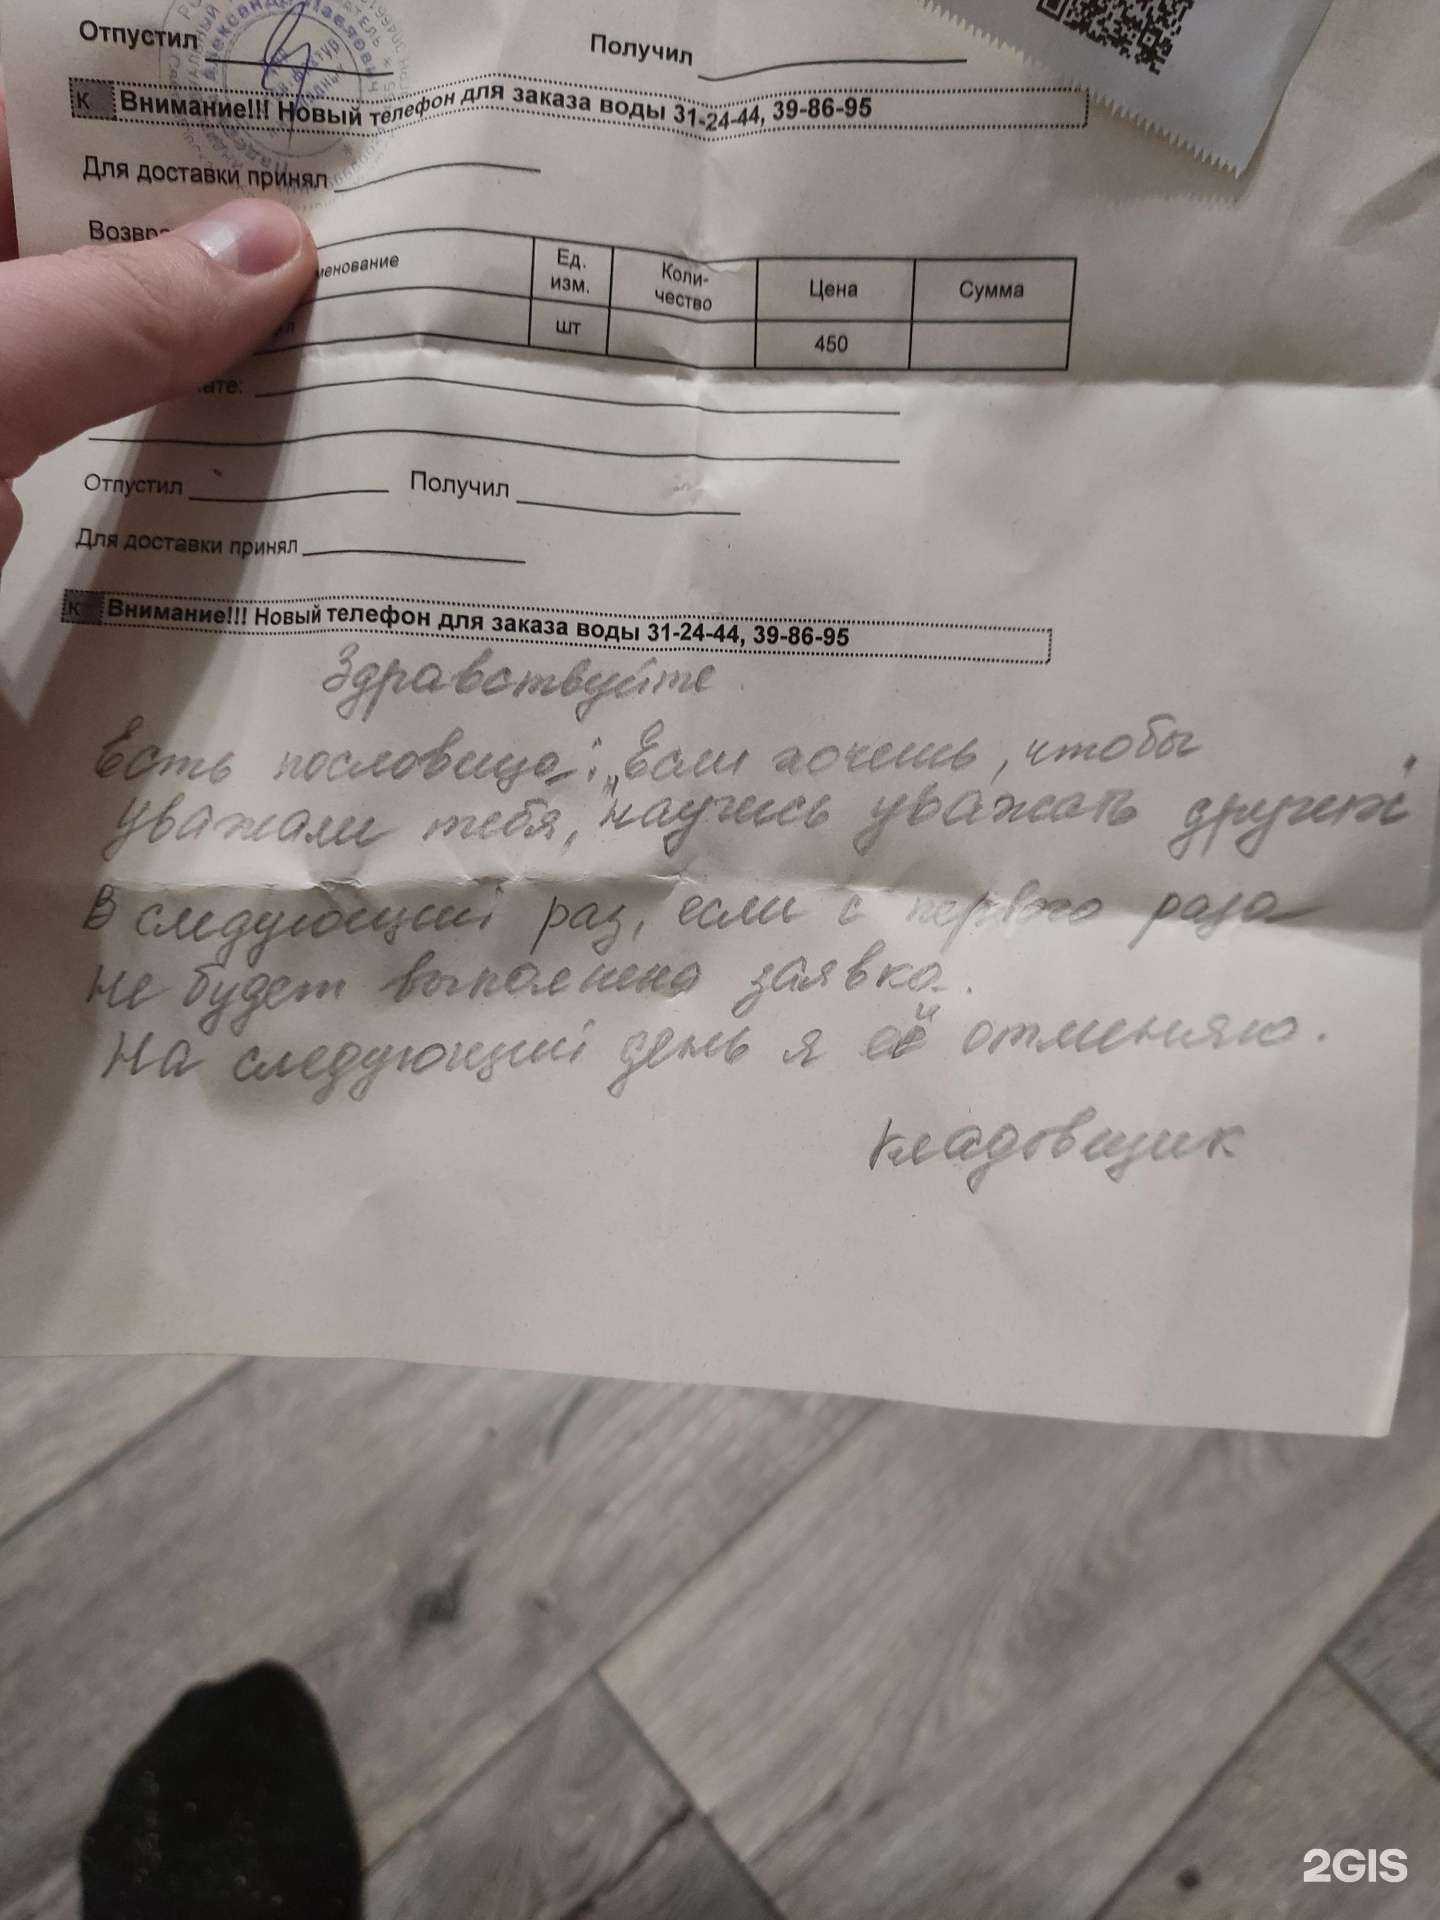 Отпустил Получил
К Внимание!!! Новый телефон для заказа воды 31-24-44, 39-86-95
Для доставки принял
Ед. изм. Коли-чество Цена Сумма
шт 450
Отпустил Получил
Для доставки принял
К Внимание!!! Новый телефон для заказа воды 31-24-44, 39-86-95
Здравствуйте
Есть пословица: „Если хочешь, чтобы
уважали тебя, научись уважать других"
В следующий раз, если с первого раза
не будет выполнена заявка.
На следующий день я её отменяю.
Кладовщик
2GIS